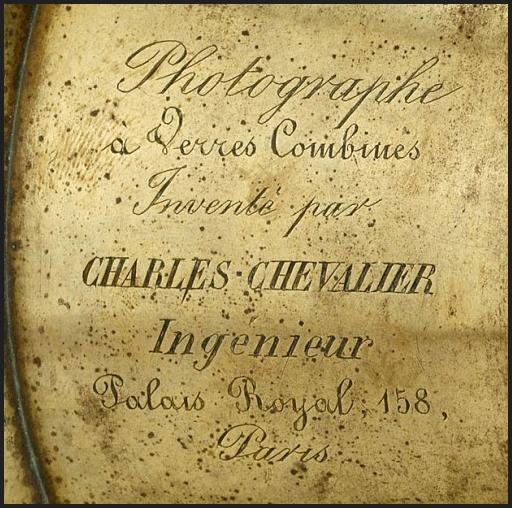 Photographe
à Verres Combinés
Inventé par
CHARLES CHEVALIER
Ingénieur
Palais Royal, 158,
Paris